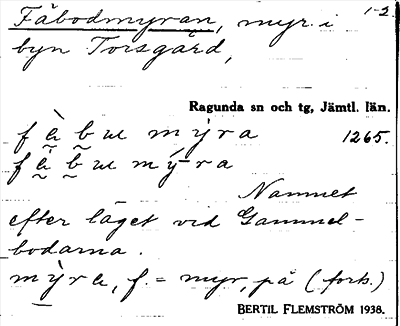 Fäbodmyran, myr i 1-2.
byn Torsgård,
Ragunda sn och tg, Jämtl. län.
f à b w m ỳ r a 1265.
f à b w m ý r a
Namnet
efter läget vid Gammel-
bodarna.
mỳra, f. = myr, på (forts.)
BERTIL FLEMSTRÖM 1938.